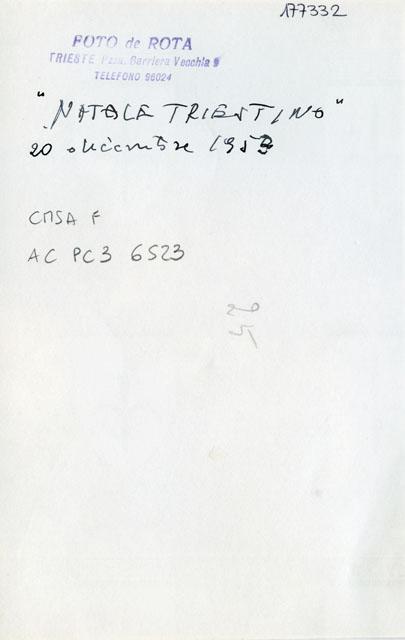 177332
FOTO de ROTA
TRIESTE P.zza Barriera Vecchia 9
TELEFONO 96024
"NATALE TRIESTINO"
20 dicembre 1953
CMSA F
AC PC3 6523
25